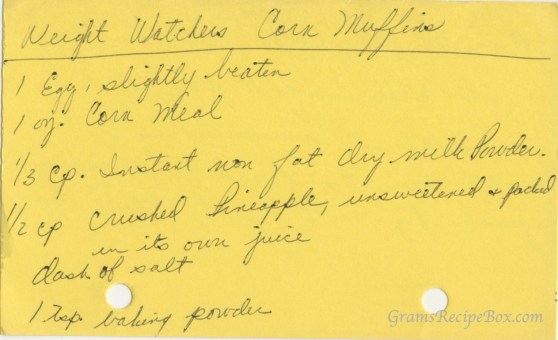 Weight Watchers Corn Muffins
1 Egg, slightly beaten
1 oz. Corn Meal
1/3 cp. Instant non fat dry milk Powder.
1/2 cp Crushed Pineapple, unsweetened & packed
in its own juice
dash of salt
1 Tsp. baking powder
GramsRecipeBox.com